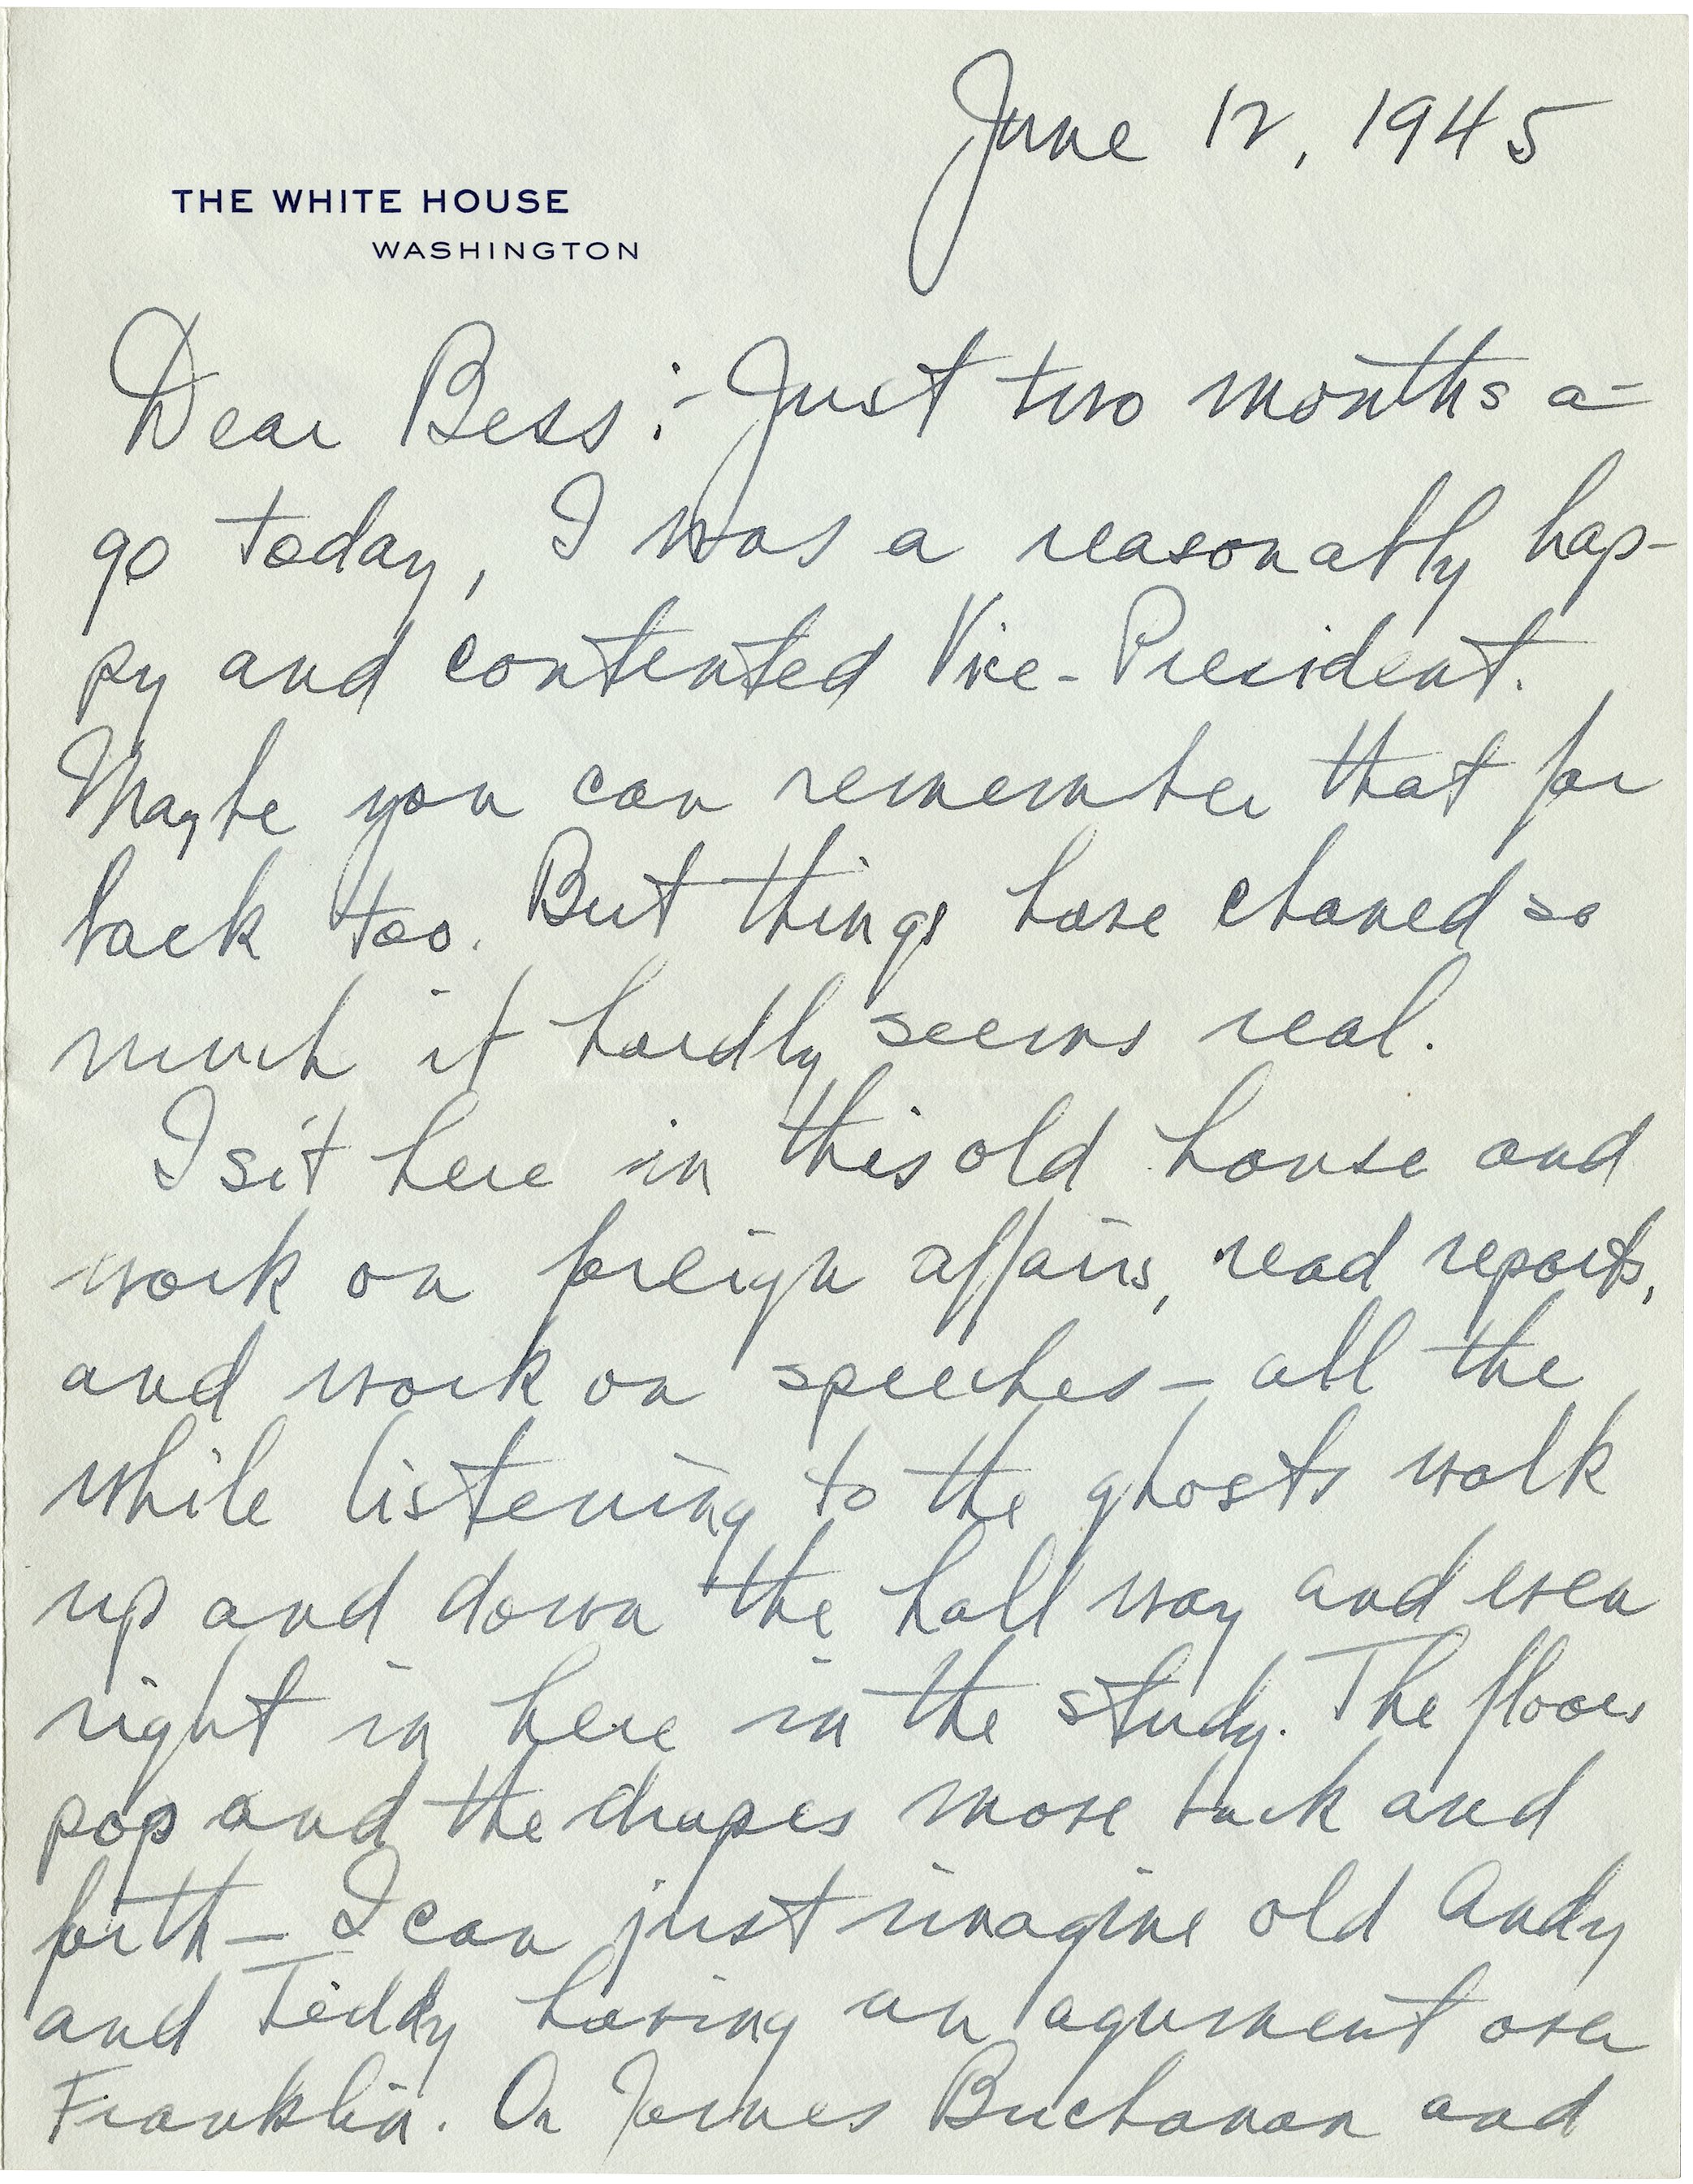 June 12, 1945
THE WHITE HOUSE
WASHINGTON
Dear Bess:- Just two months a-
go today, I was a reasonably hap-
py and contented Vice-President.
Maybe you can remember that far
back too. But things have chaned so
much it hardly seems real.
I sit here in this old house and
work on foreign affairs, read reports,
and work on speeches - all the
while listening to the ghosts walk
up and down the hall way and even
right in here in the study. The floors
pop and the drapes move back and
forth - I can just imagine old Andy
and Teddy having an agument over
Franklin. Or James Buchanan and